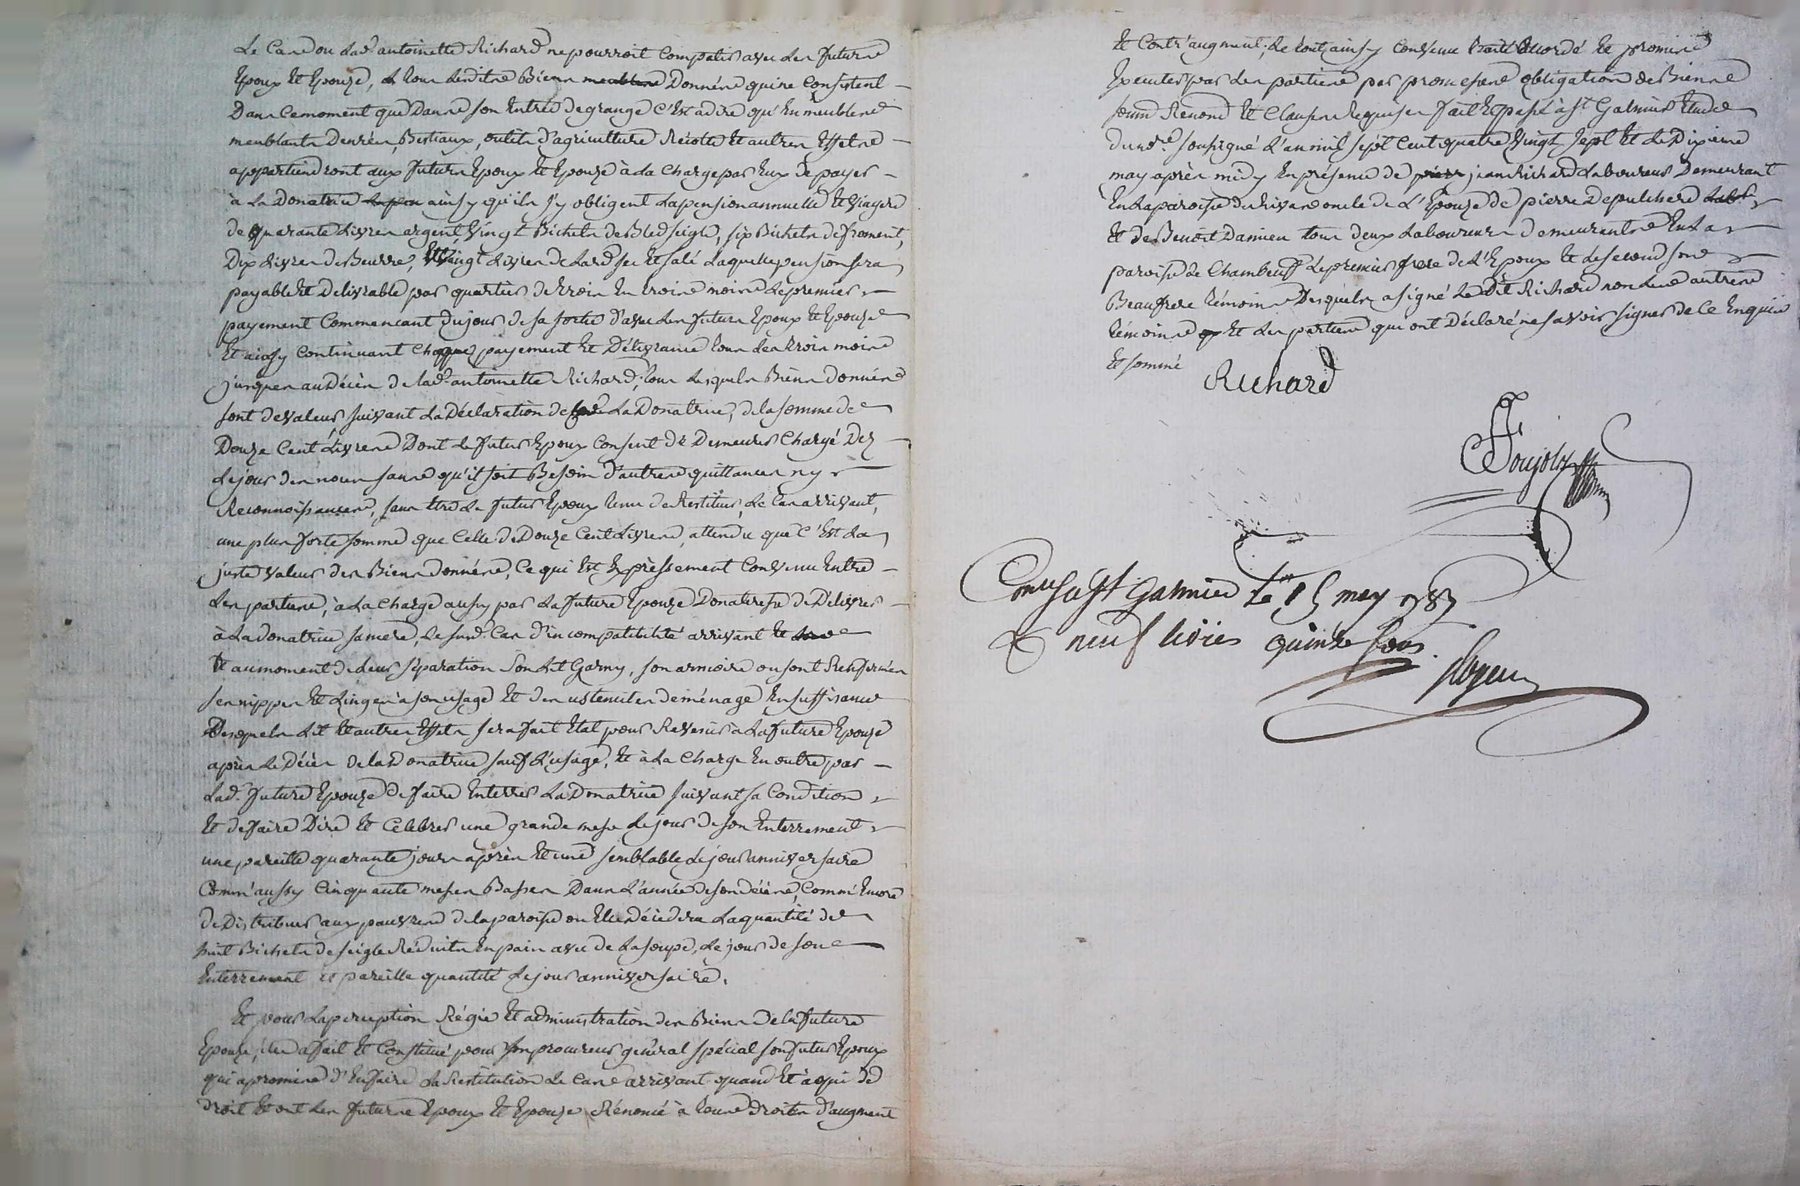 Le Cas ou Lad. antoinette Richard ne pourroit Compatir avec Les future
Epoux Et Epouze, Le tout desdits Biens Donnés qui ne Consistent
Dans Ce moment que Dans son Entrée de grange C'Est a dire qu'En meubles
meublants Denrées, Bestiaux, outils d'agriculture Récolte Et autres Effets
appartiendront aux futurs Epoux Et Epouze à La Charge par Eux de payer
à La Donatrice ainsy qu'ils s'y obligent La pension annuelle Et viagere
de quarante Livres argent vingt Bichets de Bled seigle, six Bichets de froment,
Dix Livres de Beurre, Vingt Livres de Lard sec Et salé Laquelle pension sera
payable Et Delivrable par quartier de trois En trois mois Le premier
payement Commencant du jour de sa sortie d'avec Les futurs Epoux Et Epouze
Et ainsy Continuant Chaque payement Et Délivrance tous Les trois mois
jusques au Décès de lad. antoinette Richard, tous Lesquels Biens donnés
sont de valeur suivant La Déclaration de La Donatrice, de la somme de
Douze Cent Livres Dont Le futur Epoux Consent de Demeurer Chargé Dez
Le jour des noces sans qu'il soit Besoin d'autres quittances ny
Reconnoissances, sans Etre Le futur Epoux tenu de Restituer, Le Cas arrivant,
une plus forte somme que Celle de Douze Cent Livres, attendu que C'Est La
juste valeur des Biens donnés, Ce qui Est Expressement Convenu Entre
Les parties, à La Charge aussy par La future Epouze Donataire de Délivrer
à La donatrice sa mere, Le susd. Cas d'incompatibilité arrivant Et
Et au moment de Leur séparation Son Lit Garny, son armoire ou sont Renfermés
ses nippes Et Linges à son usage Et des ustenciles de ménage En suffisance
Desquels Lit Et autres Effets sera fait Etat pour Revenir à La future Epouze
après Le Décès de la Donatrice sauf L'usage, Et à La Charge En outre par
Lad. future Epouze de faire Enterrer La Donatrice suivant sa Condition
Et de faire Dire Et Célébrer une grande messe Le jour de son Enterrement
une pareille quarante jours après Et une semblable Le jour anniversaire
Comm'aussy Cinquante messes Basses Dans L'année de son décès, Comme Encore
de Distribuer aux pauvres de la paroisse ou Elle Décédera La quantité de
huit Bichets de seigle Réduits En pain avec de La soupe, Le jour de son
Enterrement Et pareille quantité Le jour anniversaire.
Et pour La perception Régie Et administration des Biens de la future
Epouze, Elle a fait Et Constitué pour son procureur général spécial son futur Epoux
qui a promis d'En faire La Restitution Le Cas arrivant quand Et à qui de
droit Et ont Les futurs Epoux Et Epouze Rénoncé à tous droits d'augment
Et Contr'augment, Le tout ainsy Convenu accordé Et promis
Executer par Les parties par promesses obligation de Biens
soum. Renond. Et Clauses Requises fait Et passé à St Galmier Etude
du no.re soussigné L'an mil sept Cent quatre vingt sept Et Le Dixieme
may après midy En présence de jean Richard Laboureur Demeurant
En La paroisse de Rivas oncle de L'Epouze de pierre Depulchere
Et de Benoit Damien tous deux Laboureurs demeurants En La
paroisse de Chambœuf Le premier frere de L'Epoux Et Le second son
Beaufrere témoins Desquels a signé Led. Richard non Les autres
témoins Et Les parties qui ont Déclaré ne savoir signer de Ce Enquis
Et sommé
Richard
Soujols
Con.lé a St Galmier Le 15 may 1787
R neuf livres quinze sous